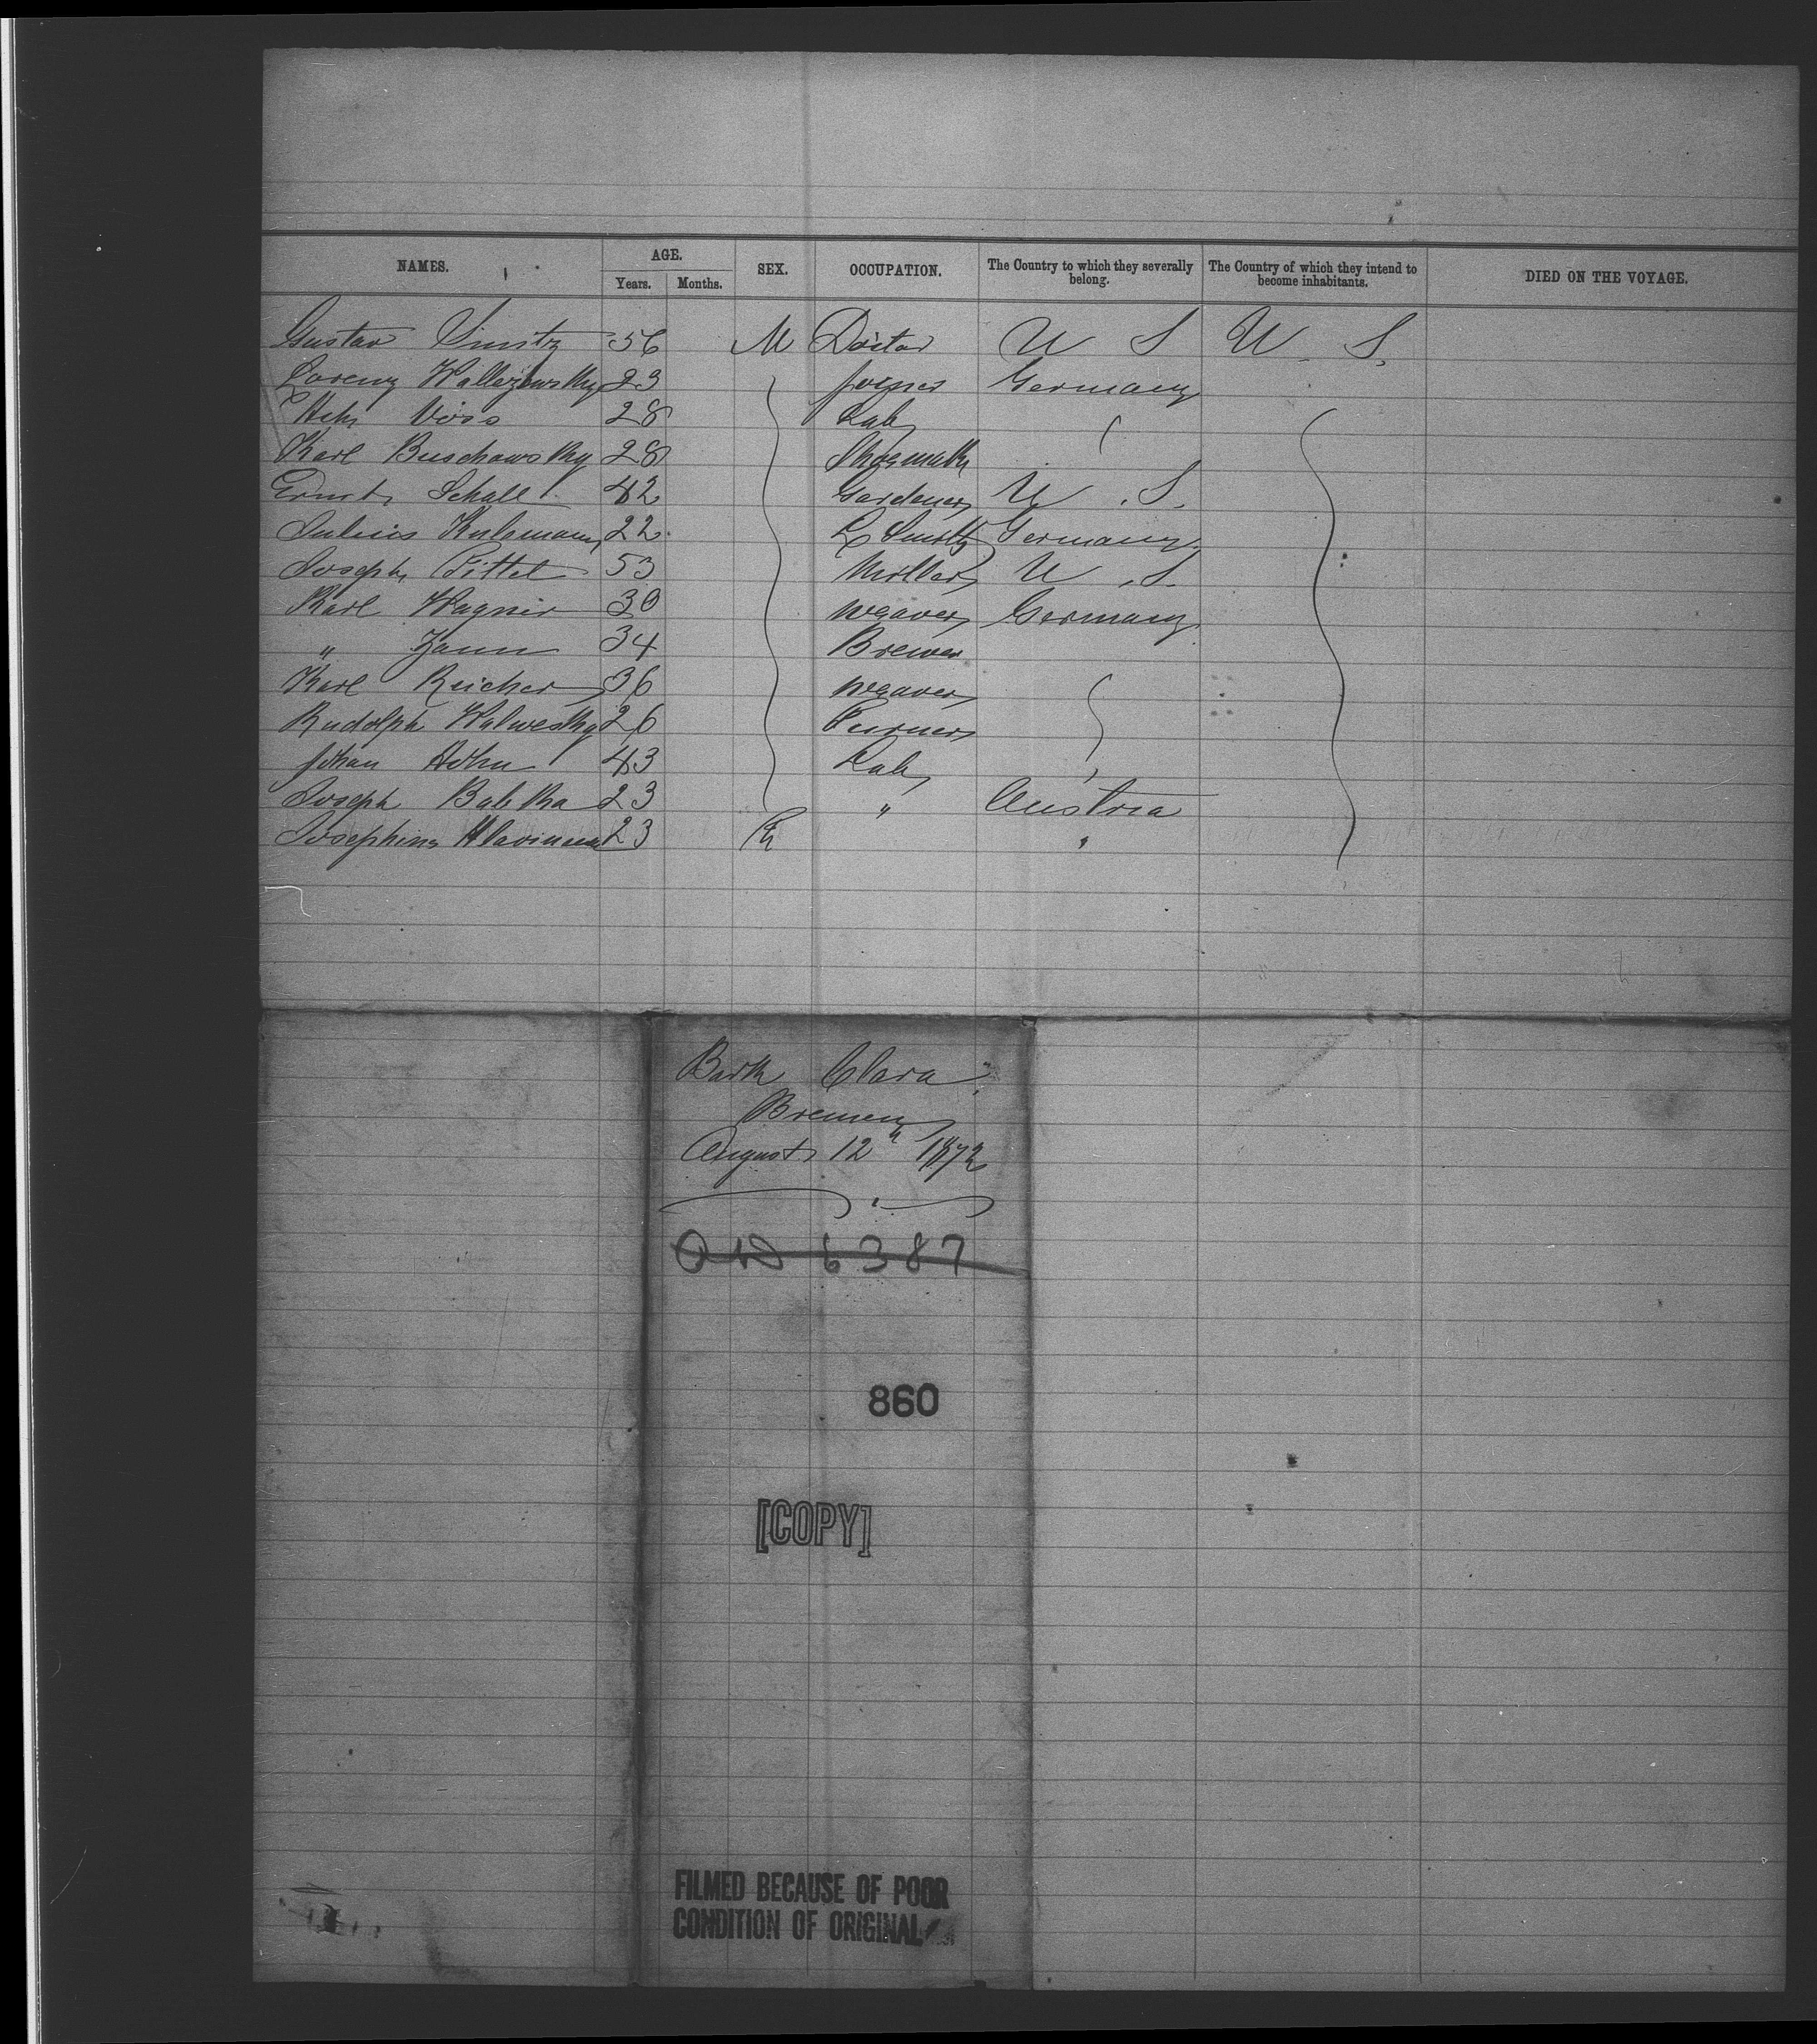 NAMES. AGE. SEX. OCCUPATION. The Country to which they severally belong. The Country of which they intend to become inhabitants. DIED ON THE VOYAGE.
Years. Months.
Gustav 56 M Doctor U S U. S.
Lorenz 23 Joiner Germany
Voss 28 Lab
Karl Buschowsky 28 Shoemaker
Ernst Schall 42 Gardener U. S.
Julius Kulemann 22 Germany
Joseph Pittel 53 Miller U. S.
Karl Wagner 30 Weaver Germany
" 34 Brewer
Karl Reicher 36 Weaver
Rudolph 26
Johan Hohn 43 Lab
Joseph Babka 23 " Austria
Josephine 23 "
Bark Clara
Bremen
August 12th 1872
6387
860
[COPY]
FILMED BECAUSE OF POOR
CONDITION OF ORIGINAL